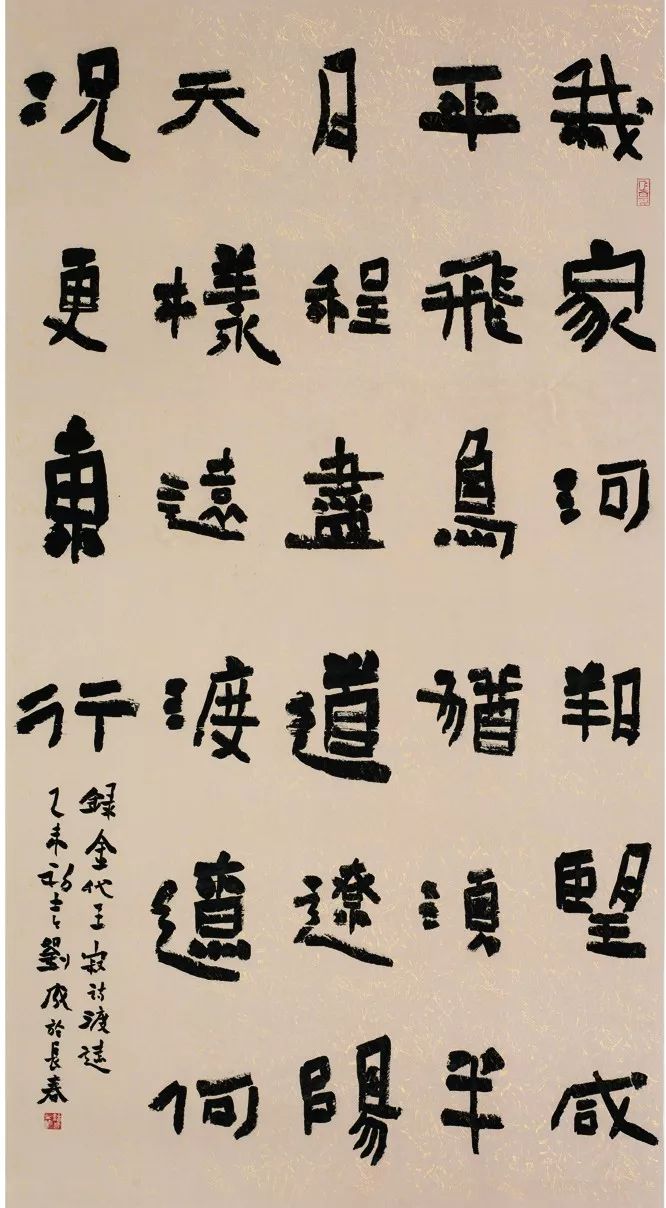 我家河朔望咸
平飛鳥猶須半
月程盡道遼陽
天樣遠渡遼何
况更東行
錄金代王寂詩渡遼
乙未初劉成於長春